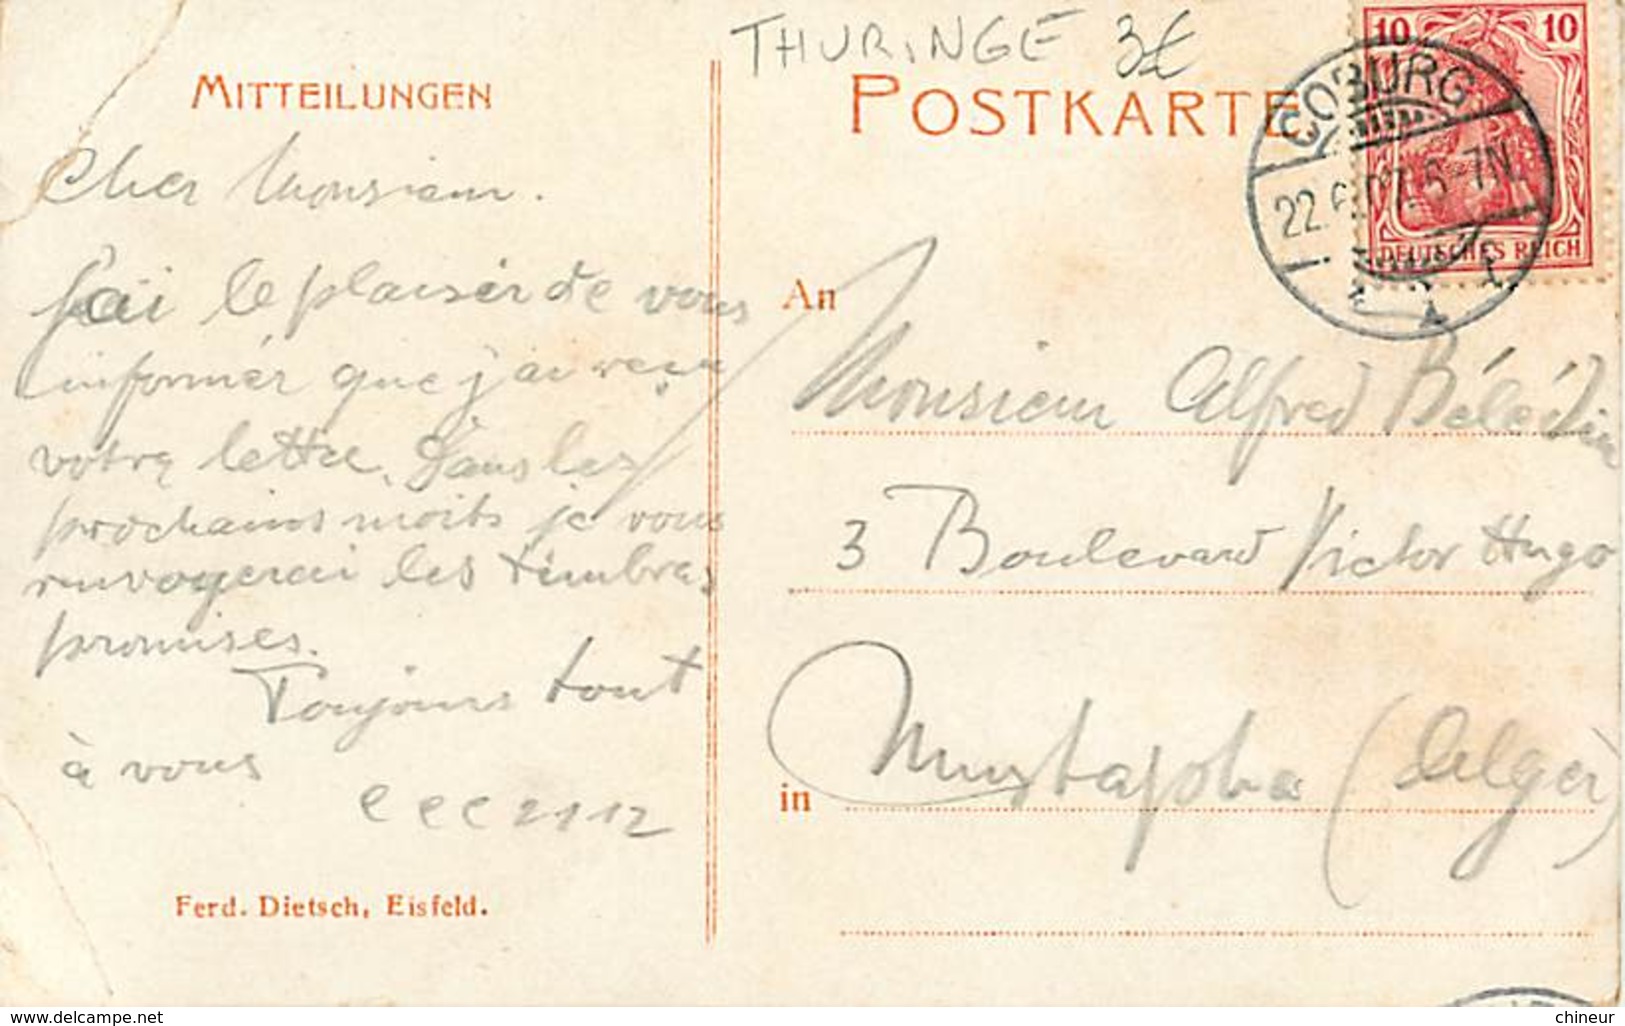 THURINGE 3€
MITTEILUNGEN
POSTKARTE
10 10
COBURG
22.6.07. 6-7N
DEUTSCHES REICH
Cher Monsieur.
J'ai le plaisir de vous
informer que j'ai reçu
votre lettre. Dans les
prochains mois je vous
renvoyerai les timbres
promises.
Toujours tout
à vous
CCC 2112
Ferd. Dietsch, Eisfeld.
An
Monsieur Alfred
3 Boulevard Victor Hugo
in Mustapha (Alger)
www.delcampe.net
chineur